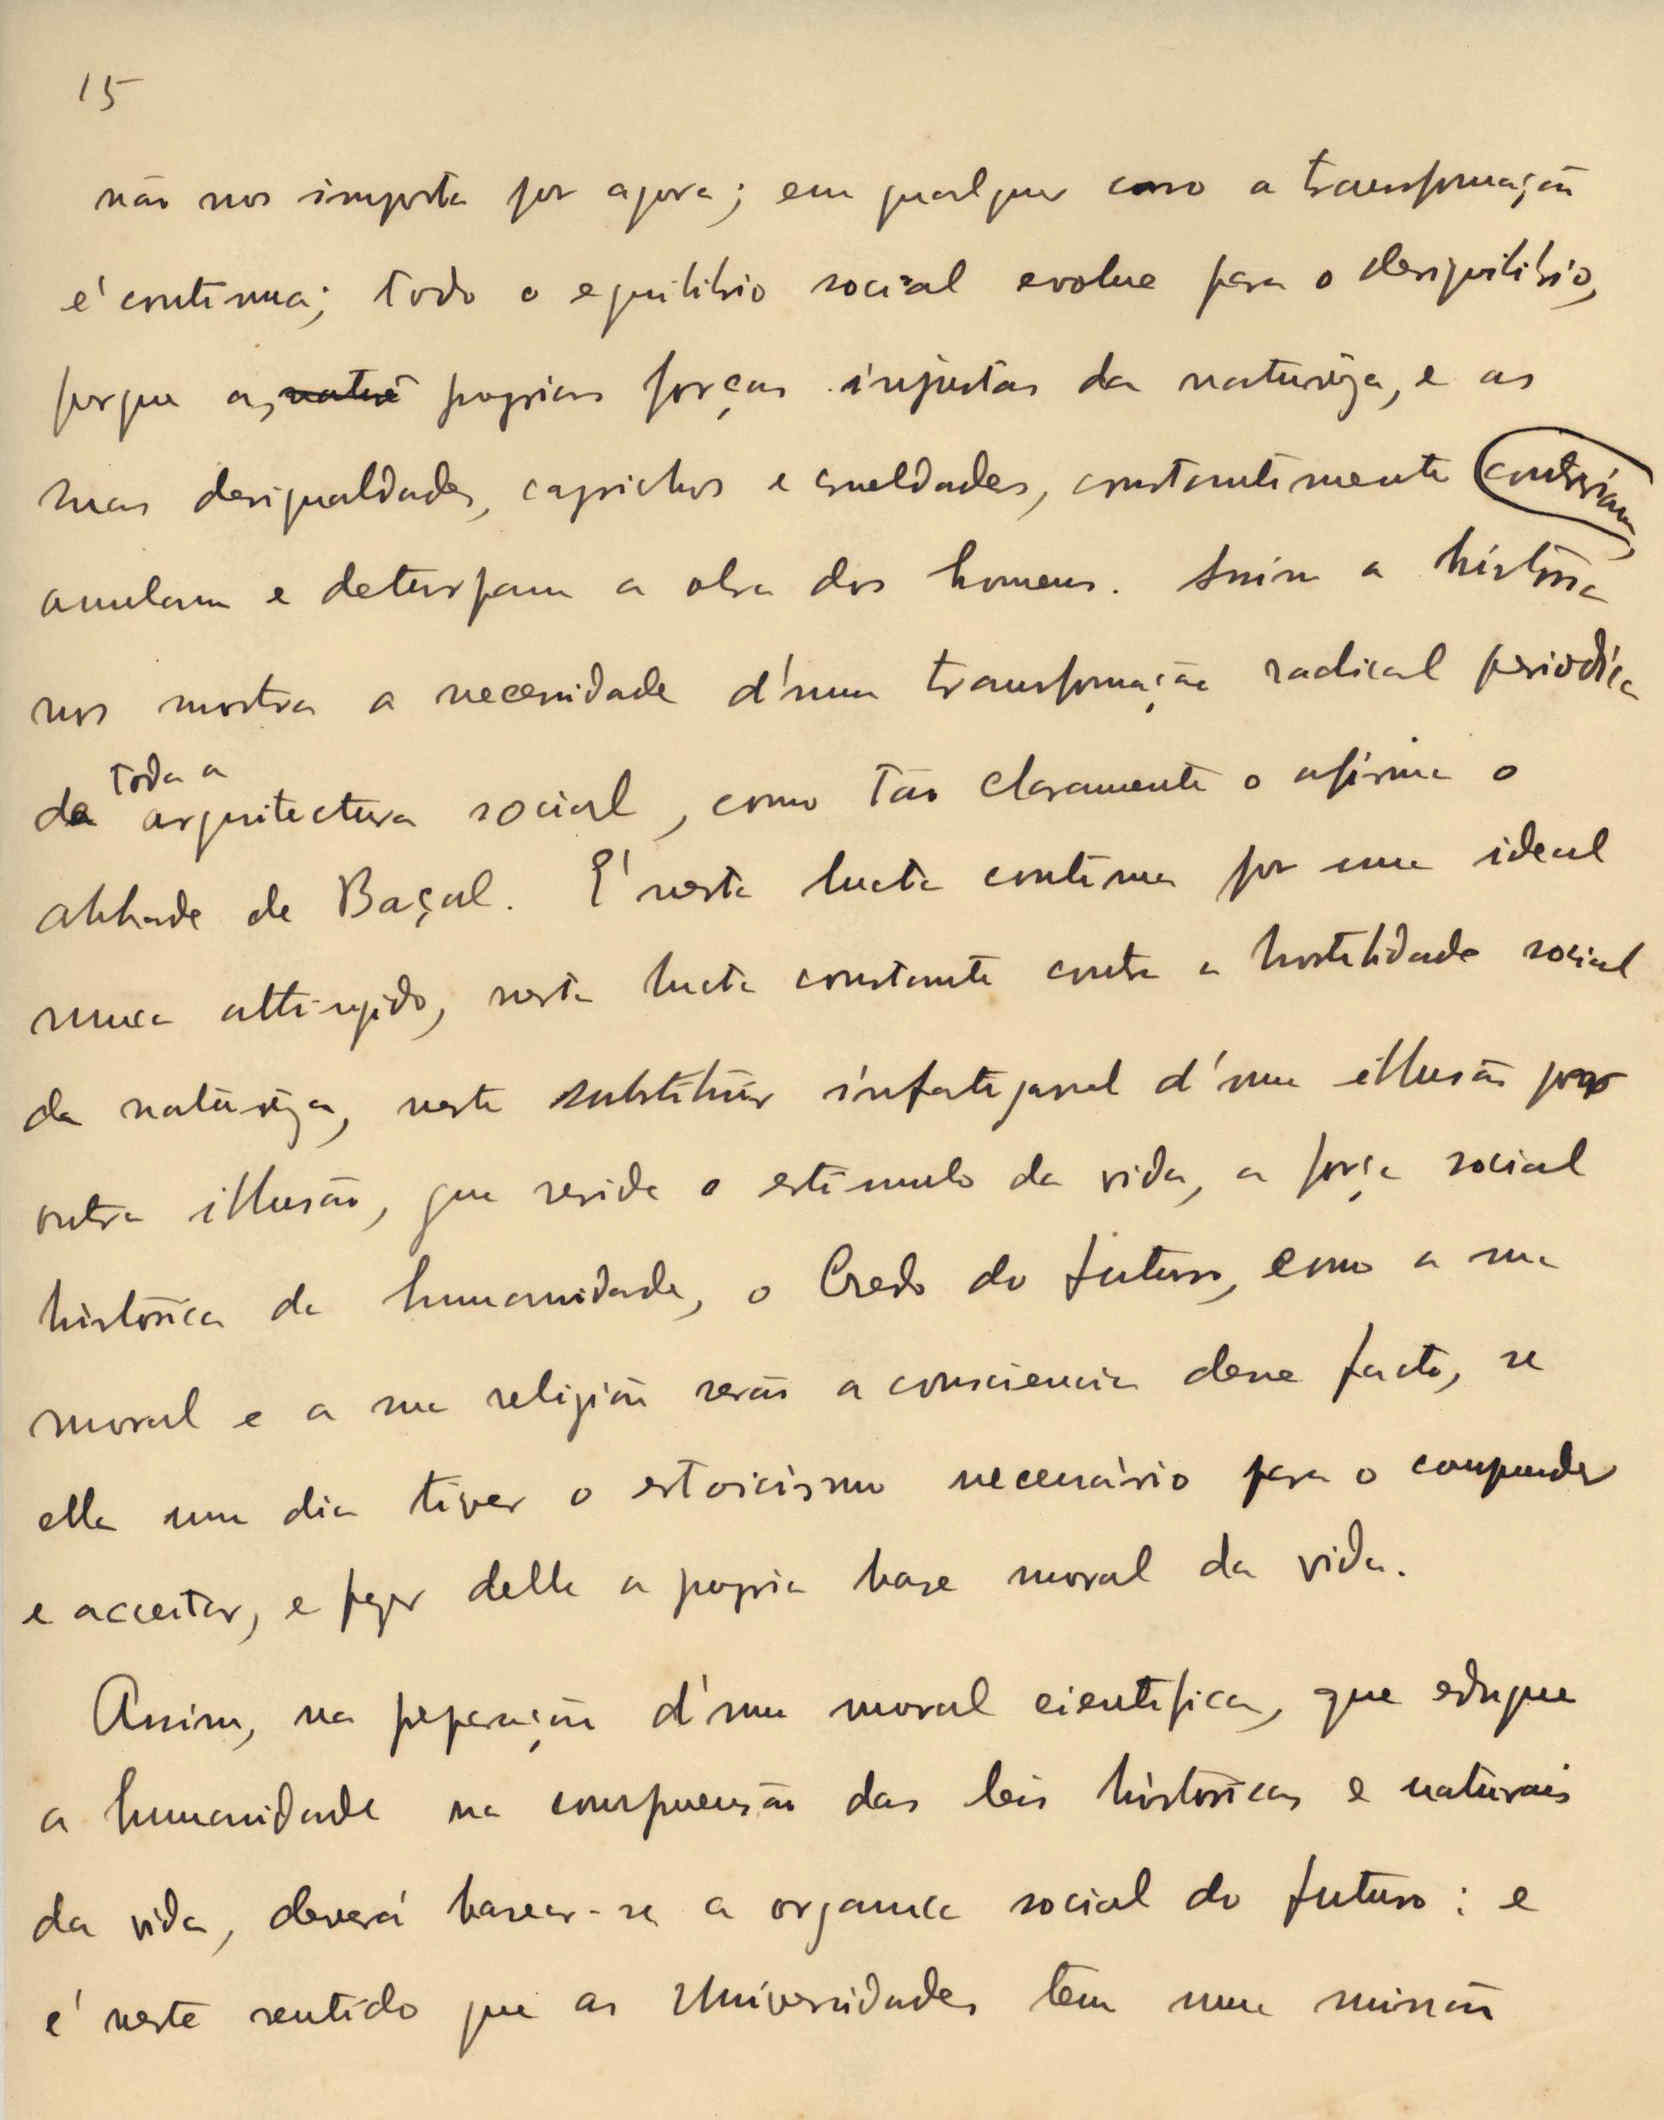 15
não nos importa por agora; em qualquer caso a transformação
é continua; todo o equilibrio social evolue para o desiquilibrio,
porque as natur proprias forças injustas da natureza, e as
suas desigualdades, caprichos e crueldades, constantemente contrariam,
annulam e deturpam a obra dos homens. Assim a história
nos mostra a necessidade d'uma transformação radical periodica
de toda a arquitectura social, como tão claramente o afirma o
abbade de Baçal. É nesta lucta continua por um ideal
nunca attingido, nesta lucta constante contra a hostilidade social
da natureza, neste substituir infatigavel d'uma illusão por
outra illusão, que reside o estimulo da vida, a força social
histórica da humanidade, o Credo do futuro, como a sua
moral e a sua religião serão a consciencia desse facto, se
ella um dia tiver o estoicismo necessário para o comprehender
e acceitar, e fazer delle a propria base moral da vida.
Assim, na preparação d'uma moral cientifica, que eduque
a humanidade na compreensão das leis históricas e naturais
da vida, deverá basear-se a organica social do futuro: e
é neste sentido que as Universidades tem uma missão